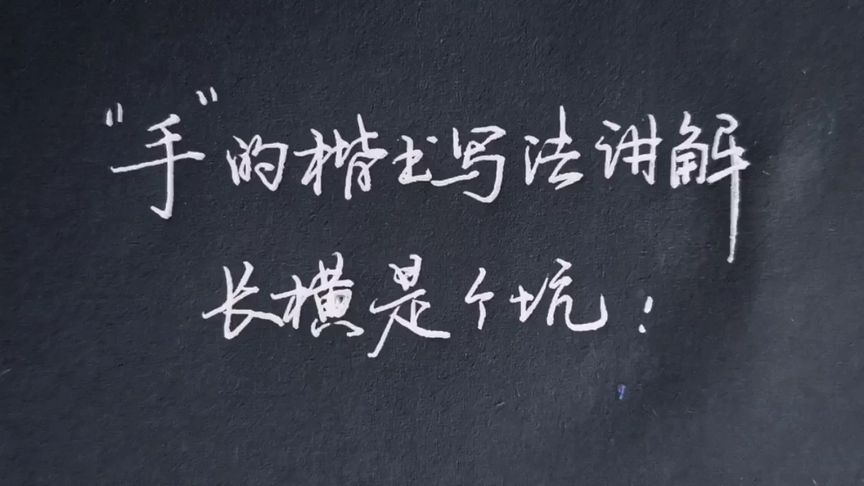 “手”的楷书写法讲解
长横是个坑！